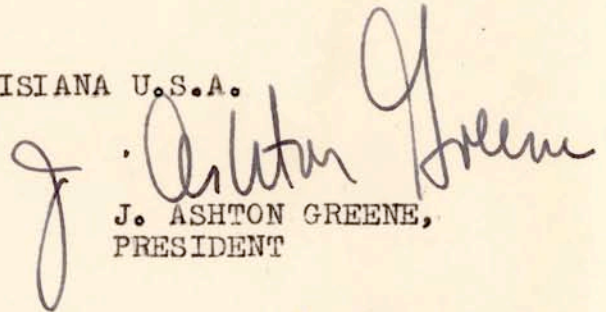 ISIANA U.S.A.
J. Ashton Greene
J. ASHTON GREENE,
PRESIDENT